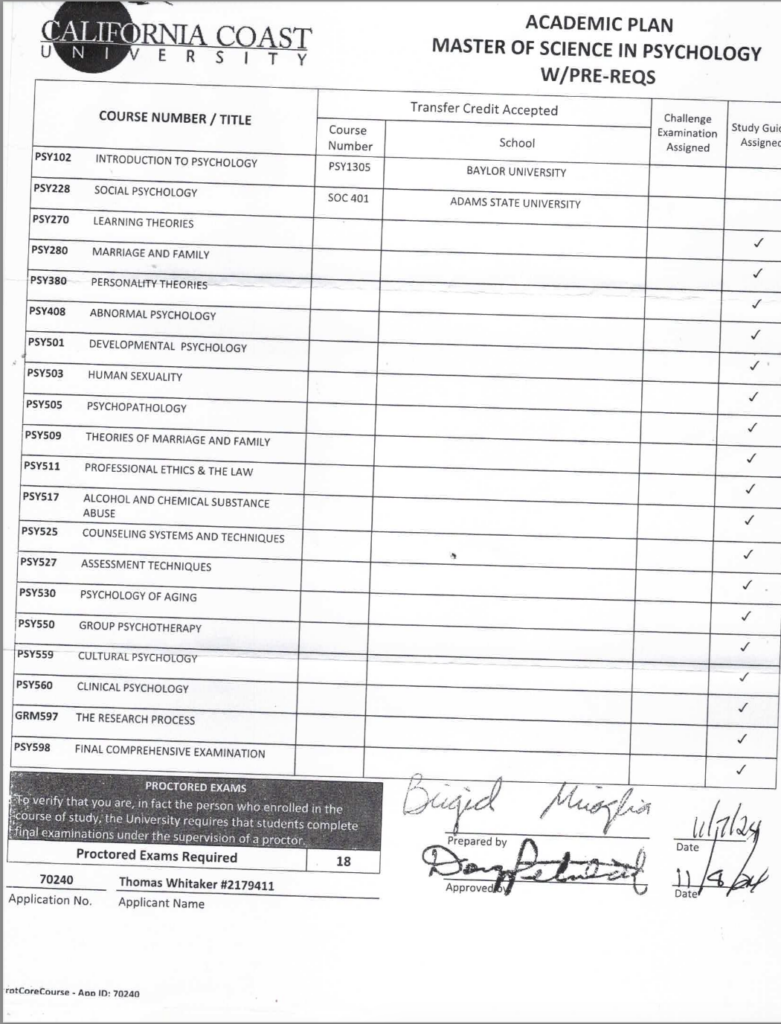 CALIFORNIA COAST
UNIVERSITY
ACADEMIC PLAN
MASTER OF SCIENCE IN PSYCHOLOGY
W/PRE-REQS
COURSE NUMBER / TITLE
Transfer Credit Accepted
Course Number
School
Challenge Examination Assigned
Study Guid Assigned
PSY102 INTRODUCTION TO PSYCHOLOGY PSY1305 BAYLOR UNIVERSITY
PSY228 SOCIAL PSYCHOLOGY SOC 401 ADAMS STATE UNIVERSITY
PSY270 LEARNING THEORIES ✓
PSY280 MARRIAGE AND FAMILY ✓
PSY380 PERSONALITY THEORIES ✓
PSY408 ABNORMAL PSYCHOLOGY ✓
PSY501 DEVELOPMENTAL PSYCHOLOGY ✓
PSY503 HUMAN SEXUALITY ✓
PSY505 PSYCHOPATHOLOGY ✓
PSY509 THEORIES OF MARRIAGE AND FAMILY ✓
PSY511 PROFESSIONAL ETHICS & THE LAW ✓
PSY517 ALCOHOL AND CHEMICAL SUBSTANCE
ABUSE ✓
PSY525 COUNSELING SYSTEMS AND TECHNIQUES ✓
PSY527 ASSESSMENT TECHNIQUES ✓
PSY530 PSYCHOLOGY OF AGING ✓
PSY550 GROUP PSYCHOTHERAPY ✓
PSY559 CULTURAL PSYCHOLOGY ✓
PSY560 CLINICAL PSYCHOLOGY ✓
GRM597 THE RESEARCH PROCESS ✓
PSY598 FINAL COMPREHENSIVE EXAMINATION ✓
PROCTORED EXAMS
To verify that you are, in fact the person who enrolled in the
course of study, the University requires that students complete
final examinations under the supervision of a proctor.
Proctored Exams Required 18
70240 Thomas Whitaker #2179411
Application No. Applicant Name
Brigid
Prepared by
11/7/24
Date
Approved by
11/8/24
Date
rotCoreCourse - App ID: 70240